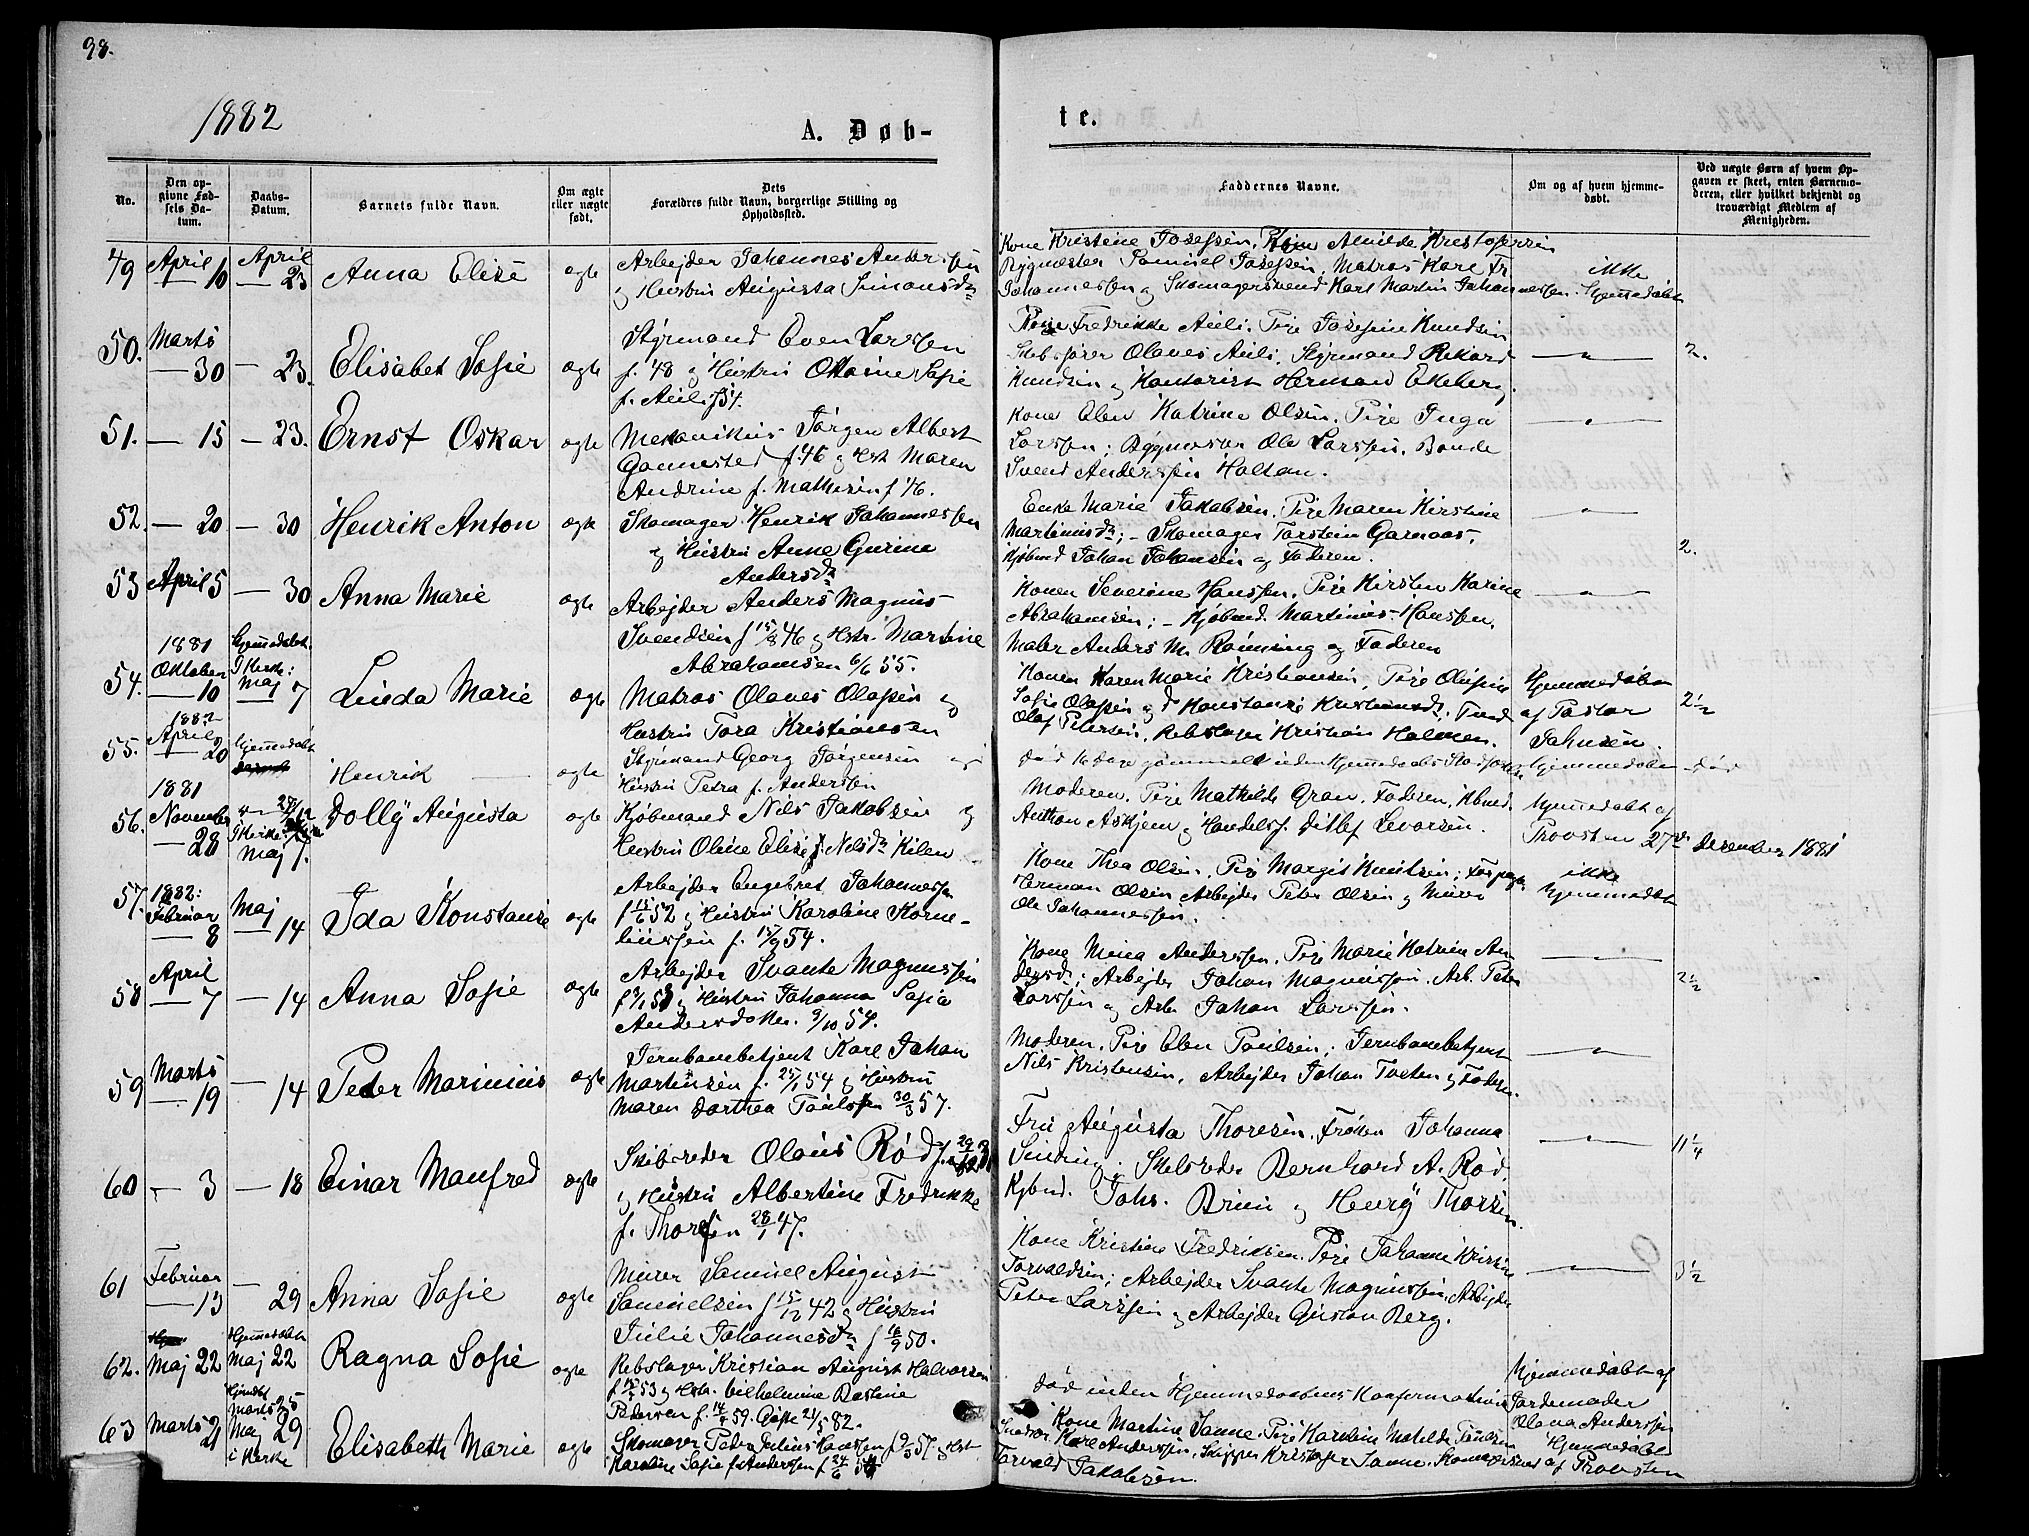 98.
1882
A. Døb-
te.
No.
Den op-
givne Fød-
sels Da-
tum.
Daabs-
Datum.
Barnets fulde Navn.
Om ægte
eller uægte
født.
Dets
Forældres fulde Navn, borgerlige Stilling og
Opholdssted.
Faddernes Navne.
Om og af hvem hjemme-
døbt.
Ved uægte Børn af hvem Op-
gaven er skeet, enten Barnemo-
deren, eller hvilket bekjendt og
troværdigt Medlem af
Menigheden.
49 April 10 April 23 Anna Elise ægte
Arbejder Johannes Anderssen
og Hustru Augusta Simonsdr
Kone Kristine Josefsen, Alvilde Kristofersen
Samuel Josefsen, Matros Karl Fr.
Johannessen og Skomagersvend Karl Martin Johannessen.
ikke
hjemmedøbt
50. Marts 30 — 23. Elisabet Sofie ægte
Styrmand Even Larssen
f. 48 og Hustru Ottoine Sofie
f. Auli f 54.
Kone Fredrikke Auli, Pige Josefine Knudsen
Skibsfører Olaves Auli, Styrmand Rikard
Knudsen og Kontorist Herman Ekeberg.
— " — 2.
51. — 15 — 23. Ernst Oskar ægte
Mekanikus Jørgen Albert
Gonnestad f. 46 og Hst. Maren
Andrine f. Mathisen f 46.
Kone Elen Katrine Olsen, Pige Inga
Larssen; Bygmester Ole Larssen, Bonde
Svend Anderssen Holtan.
— " —
52. — 20 — 30 Henrik Anton ægte
Skomager Henrik Johannessen
og Hustru Anne Gurine
Andersdr
Enke Marie Jakobsen, Pige Maren Kirstine
Martinusdr; – Skomager Torstein Garnaas,
Kjøbmd Johan Johansen og Faderen.
— " — 2.
53 April 5 — 30 Anna Marie ægte
Arbejder Anders Magnus
Svendsen f 15/8 46 og Hstr. Martine
Abrahamsen 6/6 55.
Konen Severine Hanssen, Pige Kirsten Karine
Abrahamsen; – Kjøbmd. Martinus Hanssen,
Maler Anders M. Rønning og Faderen
— " —
54. 1881 Oktober 10 Hjemmedøbt. I Kirke: Maj 7 Linda Marie ægte
Matros Olaves Olassen og
Hustru Tora Kristiansen
Konen Karen Marie Kristiansen, Pige
Sofie Olassen og Konstanse Kristiansdr.
Olaf Petersen, Rebslager Kristian Halvorsen.
Hjemmedøbt
af Pastor
Johnsen.
2 1/2
55. 1882 April 20 Hjemmedøbt Henrik ægte
Styrmand Georg Jørgensen og
Hustru Petra f. Anderssen
død 16 Dage gammel uden Hjemmedaabs
Hjemmedøbt død
56. 1881 November 28 I Kirke: Maj 7. Dolly Augusta ægte
Kjøbmand Nils Jakobsen og
Hustru Oline Elise f. Nilsdr Kilen
Moderen, Pige Mathilde Gran, Faderen, Kbmd.
Anthon Askjem og Handelsf. Ditlef Sevarsen.
Hjemmedøbt af
Provsten 27de December 1881
57. 1882: Februar 8 Maj 14 Ida Konstanse ægte
Arbejder Engebret Johannessen
f 15/6 52 og Hustru Karoline Korne-
liussen f. 15/9 54.
Kone Thea Olsen, Pige Margit Knutsen;
Herman Olsen Arbejder Peter Olsen og Murer
Ole Johannessen.
ikke
hjemmedøbt
58 April 7 — 14 Anna Sofie ægte
Arbejder Svante Magnussen
og Hustru Johanna Sofia
Andersdotter. 9/10 54.
Kone Mina Anderssen, Pige Marie Katrin An-
dersdr; Arbejder Johan Magnussen, Arb. Peter
Larssen og Arb. Johan Larssen.
— " — 2 1/2
59 Marts 19 — 14 Peder Marinius ægte
Jernbanebetjent Karl Johan
Martinsen f. 25/1 54 og Hustru
Maren Dorthea Paulssen 30/3 57.
Moderen, Pige Elen Paulsen; Jernbanebetjent
Nils Kristensen, Arbejder Johan Tveten og Faderen.
— " —
60 — 3 — 18 Einar Manfred ægte
Skibsreder Olaus Rød
og Hustru Albertine Fredrikke
f. Thoresen 28/1 47.
Fru Augusta Thoresen, Frøken Johanna
Sinding, Skibsreder Bernhard A. Rød,
Kjbmd. Johs. Bruu og Henry Thoresen.
— " — 11 1/4
61 Februar 13 — 29 Anna Sofie ægte
Murer Samuel August
Samuelsen f 15/12 42 og Hustru
Julie Johannesdr f 16/9 50.
Kone Kristine Fredriksen, Pige Johanne Kristine
Torvaldsen; Arbejder Svante Magnussen, Arbejder
Peter Larssen og Arbejder Gustav Berg.
— " — 3 1/2
62. Maj 22 Hjemmedøbt Maj 22 Ragna Sofie ægte
Rebslager Kristian August Halvorsen
53 og Hstr. Vilhelmine Bastine
Pedersen f. 14/9 59. Gifte 21/5 82.
død inden Hjemmedaabens Konfirmation
Hjemmedøbt af
Jordemoder
Olava Anderssen
63 Marts 21 Hjemdbt Marts 25 Maj 29 i Kirke Elisabeth Marie ægte
Skomager Peder Julius Hanssen f 9/3 57 og Hst.
Karoline Sofie f. Anderssen f 24/6
Kone Martine Sanne, Pige Karoline Matilde Paulsen
Karl Anderssen, Skipper Kristofer Sanne, Skomagersvend
Torvald Jakobsen.
Hjemmedøbt
af Provsten